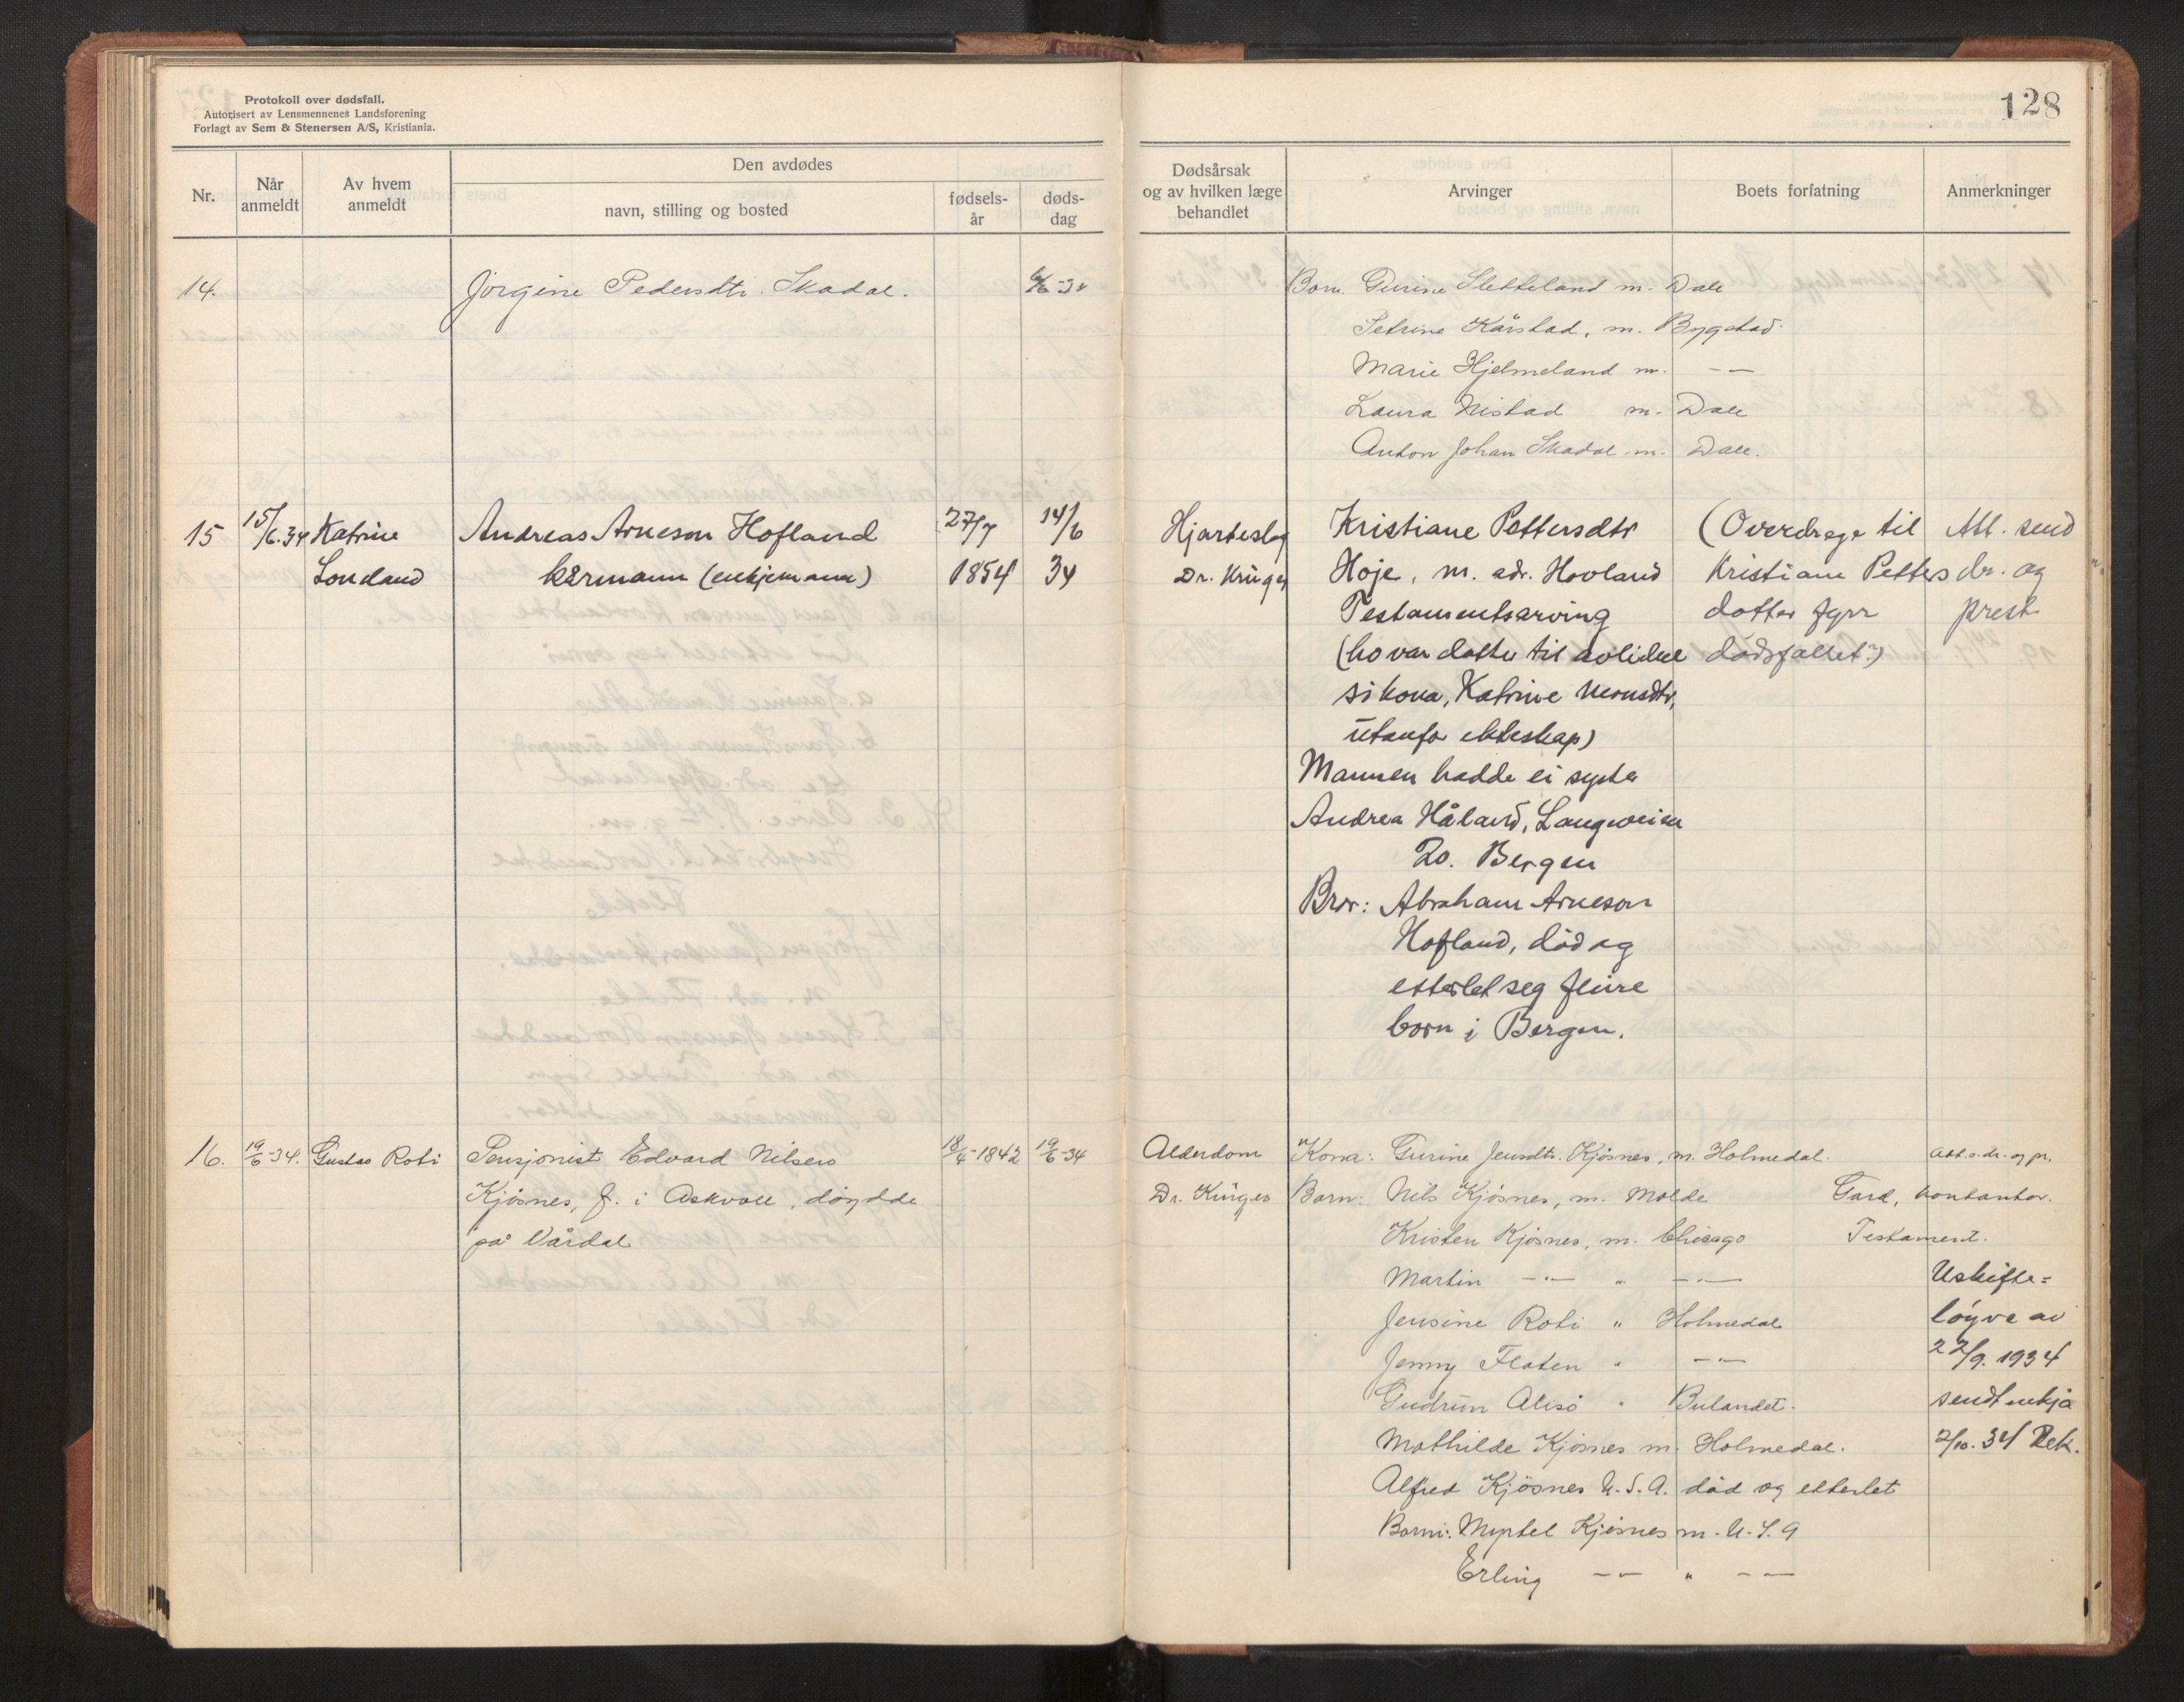 Protokoll over dødsfall.
Autorisert av Lensmennenes Landsforening
Forlagt av Sem & Stenersen A/S, Kristiania.
128
Nr.
Når anmeldt
Av hvem anmeldt
Den avdødes
navn, stilling og bosted
fødsels-år
døds-dag
Dødsårsak og av hvilken læge behandlet
Arvinger
Boets forfatning
Anmerkninger
14. Jørgine Pedersdtr. Skadal. Born. Gurine Sletteland m. Dale
Petrine Kårstad, m. Bygstad.
Marie Hjelmeland m. — —
Laura Nistad m. Dale
Anton Johan Skadal m. Dale.
15 15/6.34 Katrine Andreas Arneson Hofland 27/7 14/6 Hjarteslag Kristiane Pettersdtr (Overdrege til Att. send
Londland kårmann (enkjemann) 1854 34 Dr. Krüger Høje, m. adr. Hovland Kristiane Petters dr. og
Testamentsarving dotter fyrr prest
(ho var dotter til avlidne dødsfallet?)
si kona, Katrine Monsdtr,
utanfor ekteskap)
Mannen hadde ei syster
Andrea Håland, Langeveien
20. Bergen
Bror: Abraham Arneson
Hofland, död og
etterlet seg fleire
born i Bergen.
16. 19/6-34. Gustav Roti Pensjonist Edvard Nilsen 18/4-1842 19/6-34 Alderdom Kona: Gurine Jensdtr. Kjøsnes, m. Holmedal. Att. s. dr. og pr.
Kjøsnes, f. i Askvoll, døydde Dr. Krüger Barn: Nils Kjøsnes, m. Molde Gard, kontantar.
på Vårdal Kristen Kjøsnes, m. Chicago Testament.
Martin —"— " —"— Uskifte=
Jensine Roti " Holmedal løyve av
Jenny Flaten " —"— 22/9. 1934
Gudrun Alesø " Bulandet. sendt enkja
Mathilde Kjøsnes m. Holmedal. 2/10. 34 Rek.
Alfred Kjøsnes U.S.A. död og etterlet
Born: Myrtel Kjøsnes m. U.S.A
Erling — — " — —